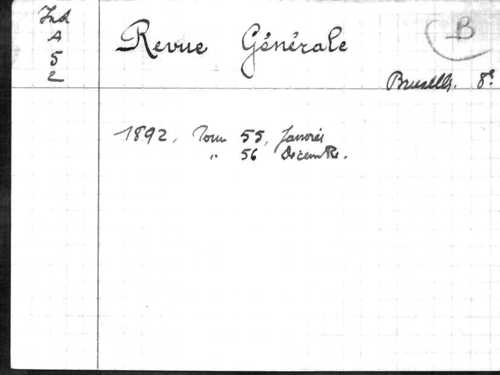 Ind
A
5
2
B
Revue Générale
Bruxelles. 8°
1892, Tome 55, Janvier
" 56 Décembre.